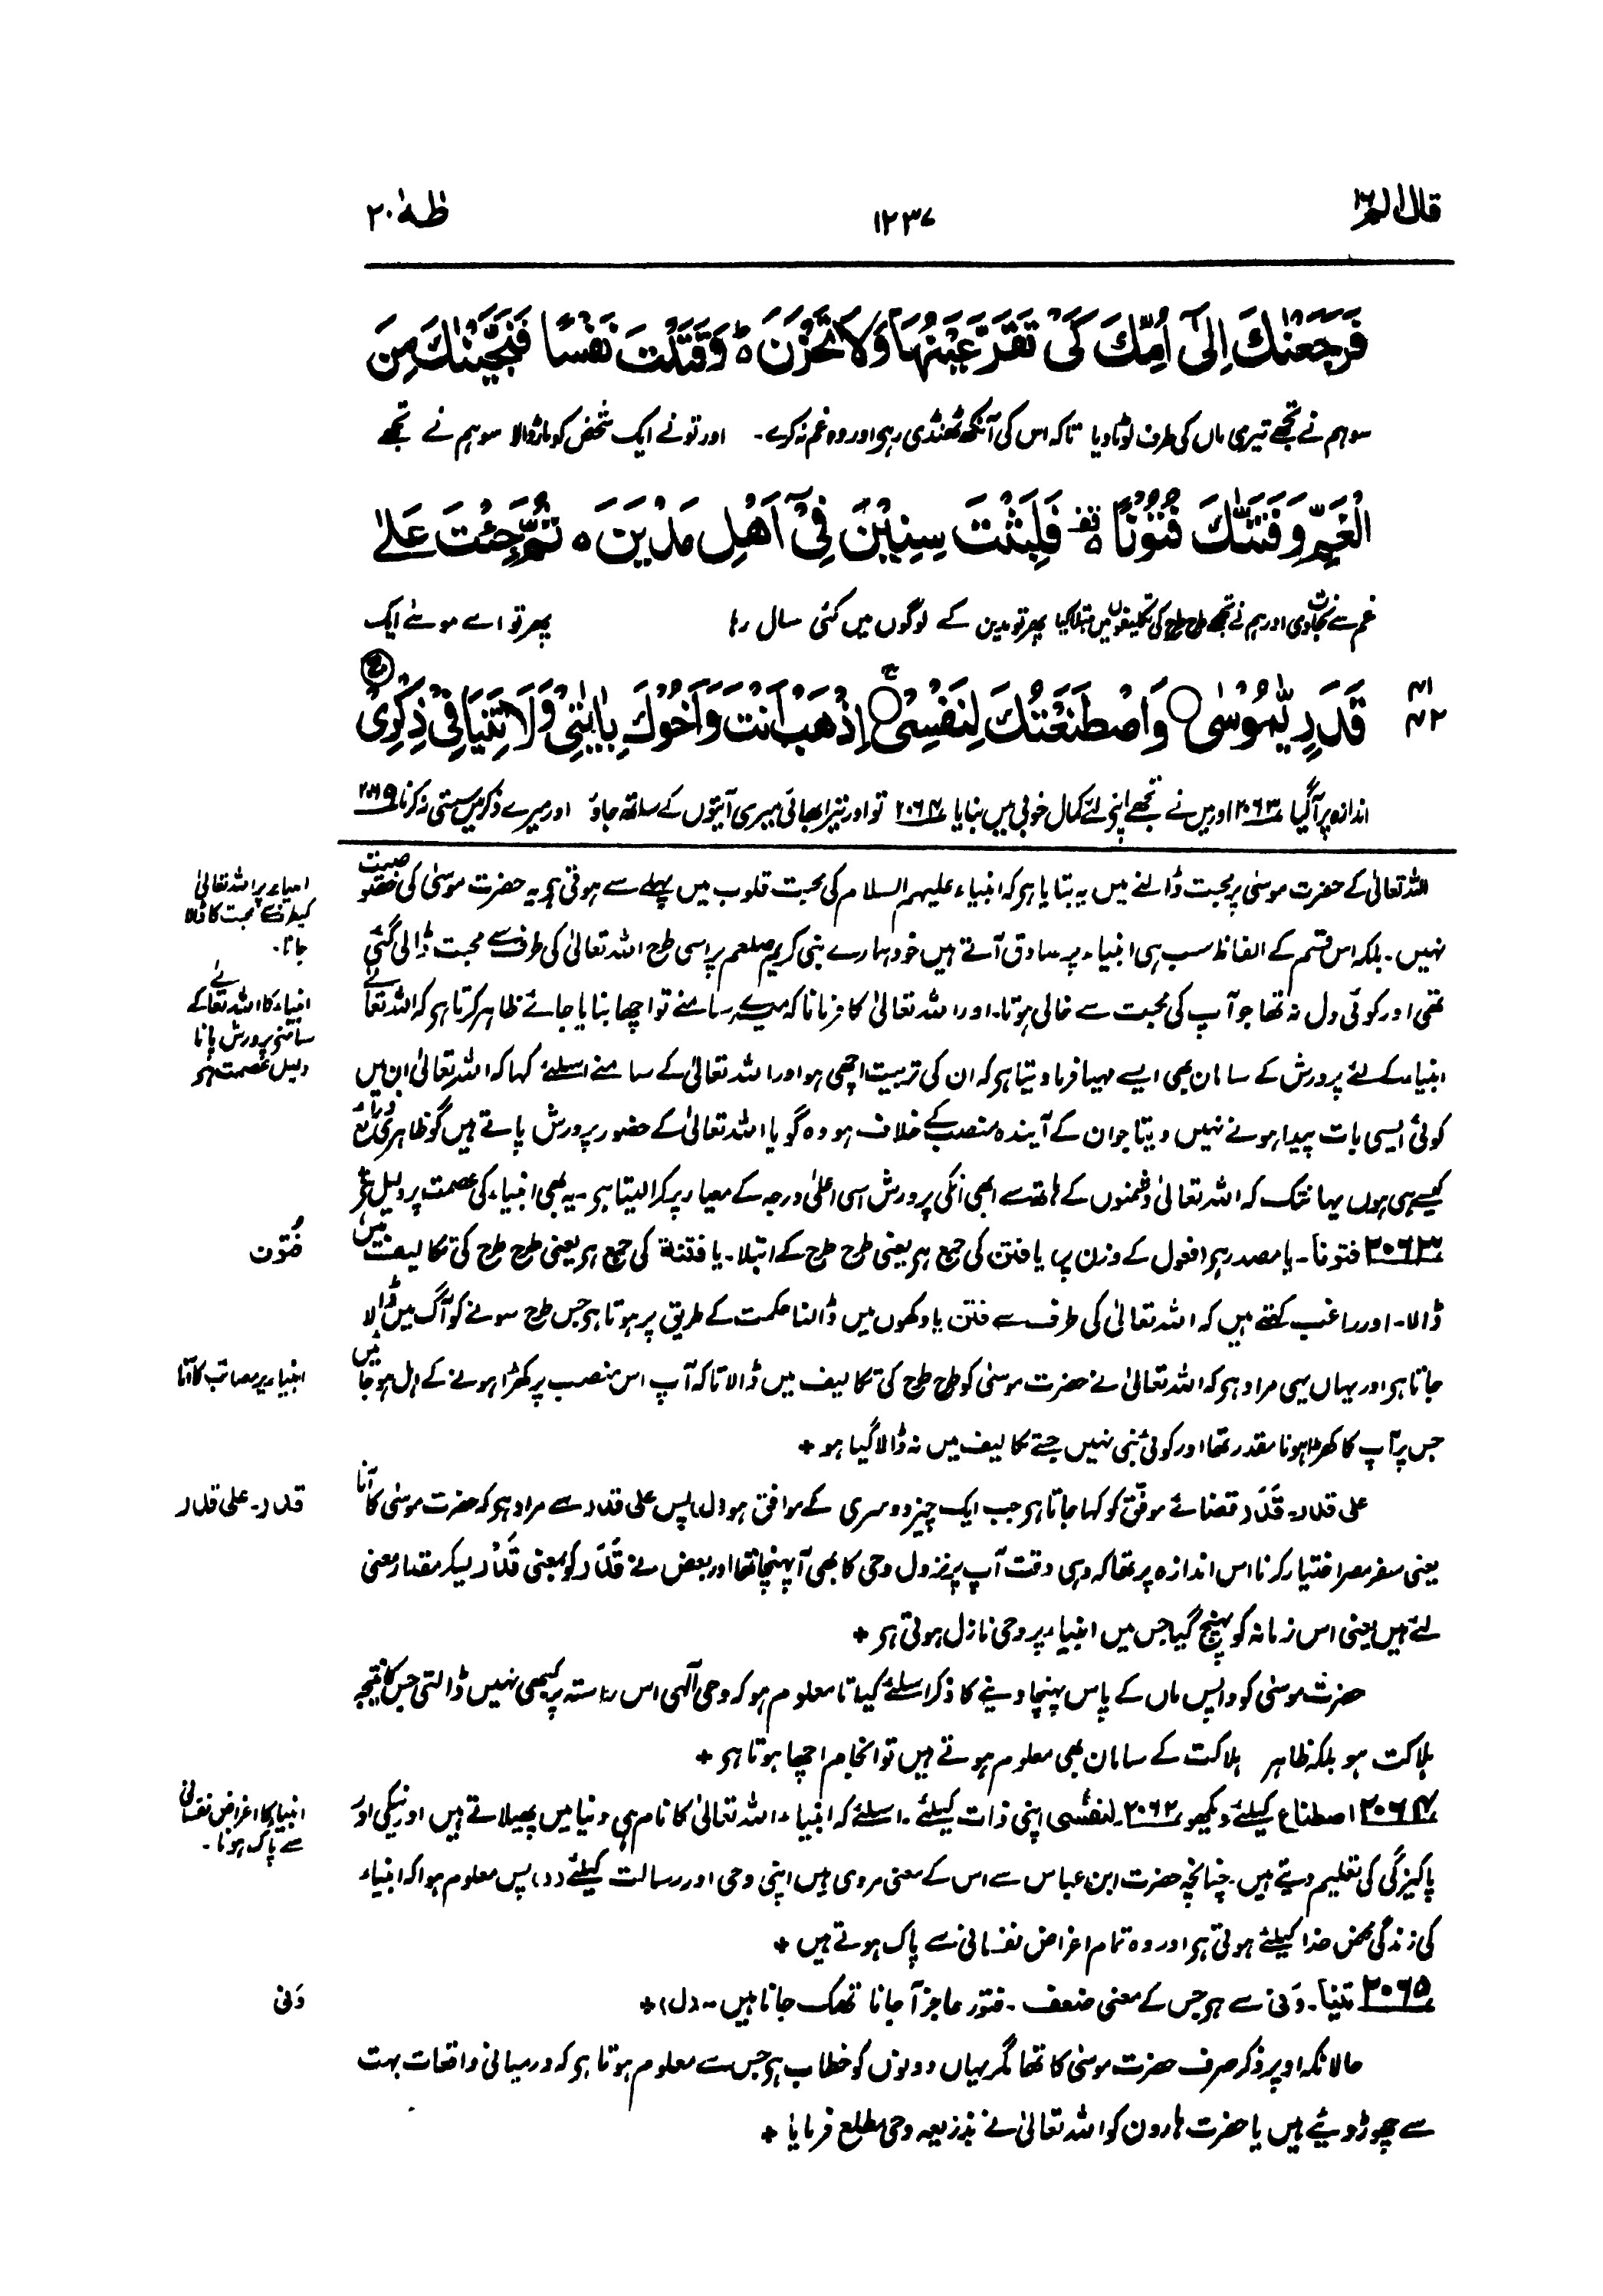 قال الم ١٦
١٢٣٧
طٰهٰ ٢٠
فَرَجَعْنٰكَ اِلٰٓى اُمِّكَ كَىْ تَقَرَّ عَيْنُهَا وَلَا تَحْزَنَ ۵ؕ وَقَتَلْتَ نَفْسًا فَنَجَّيْنٰكَ مِنَ
سو ہم نے تجھے تیری ماں کی طرف لوٹا دیا تاکہ اس کی آنکھ ٹھنڈی رہے اور وہ غم نہ کرے۔ اور تو نے ایک شخص کو مار ڈالا سو ہم نے تجھے
الْغَمِّ وَفَتَنّٰكَ فُتُوْنًا ۵ قف فَلَبِثْتَ سِنِيْنَ فِىْٓ اَهْلِ مَدْيَنَ ۵ ثُمَّ جِئْتَ عَلٰے
غم سے نجات دی اور ہم نے تجھے طرح طرح کی تکلیفوں میں مبتلا کیا پھر تو مدین کے لوگوں میں کئی سال رہا پھر تو اے موسےٰ ایک
قَدَرٍ يّٰمُوْسٰى ○ وَاصْطَنَعْتُكَ لِنَفْسِىْ ○ اِذْهَبْ اَنْتَ وَاَخُوْكَ بِاٰيٰتِىْ وَلَا تَنِيَا فِىْ ذِكْرِىْ
٤١
٤٢
اندازہ پر آگیا ۲۰۶۳ اور میں نے تجھے اپنے لئے کمال خوبی میں بنایا ۲۰۶۴ تو اور تیرا بھائی میری آیتوں کے ساتھ جاؤ اور میرے ذکر میں سستی نہ کرنا ۲۰۶۵
اللہ تعالیٰ کے حضرت موسیٰ پر محبت ڈالنے میں یہ بتایا ہے کہ انبیاء علیہم السلام کی محبت قلوب میں پہلے سے ہوتی ہے یہ حضرت موسیٰ کی خصوصیت
نہیں۔ بلکہ اس قسم کے الفاظ سب ہی انبیاء پر صادق آتے ہیں خود ہمارے نبی کریم صلعم پر اسی طرح اللہ تعالیٰ کی طرف سے محبت ڈالی گئی
تھی اور کوئی دل نہ تھا جو آپ کی محبت سے خالی ہوتا۔ اور اللہ تعالیٰ کا فرمانا کہ میرے سامنے تو اچھا بنایا جائے ظاہر کرتا ہے کہ اللہ تعالیٰ
انبیاء کے لئے پرورش کے سامان بھی ایسے مہیا فرما دیتا ہے کہ ان کی تربیت اچھی ہو اور اللہ تعالیٰ کے سامنے اسلئے کہا کہ اللہ تعالیٰ ان میں
کوئی ایسی بات پیدا ہونے نہیں دیتا جو ان کے آیندہ منصب کے خلاف ہو وہ گویا اللہ تعالیٰ کے حضور پرورش پاتے ہیں گو ظاہری ذرائع
کیسے ہی ہوں یہانتک کہ اللہ تعالیٰ دشمنوں کے ہاتھ سے بھی انکی پرورش اسی اعلیٰ درجہ کے معیار پر کرا لیتا ہے۔ یہ بھی انبیاء کی عصمت پر دلیل ہے
انبیاء پر اللہ تعالیٰ
کیطرف سے محبت کا ڈالا
جانا۔
انبیاء کا اللہ تعالیٰ کے
سامنے پرورش پانا
دلیل عصمت ہے
۲۰۶۳ فتونا۔ یا مصدر ہے افعول کے وزن پر یا فتن کی جمع ہے یعنی طرح طرح کے ابتلا۔ یا فتنة کی جمع ہے یعنی طرح طرح کی تکالیف میں
فُتُون
ڈالا۔ اور راغب کہتے ہیں کہ اللہ تعالیٰ کی طرف سے فتن یا دکھوں میں ڈالنا حکمت کے طریق پر ہوتا ہے جس طرح سونے کو آگ میں ڈالا
جاتا ہے اور یہاں یہی مراد ہے کہ اللہ تعالیٰ نے حضرت موسیٰ کو طرح طرح کی تکالیف میں ڈالا تاکہ آپ اس منصب پر کھڑا ہونے کے اہل ہو جائیں
انبیاء پر مصائب کا آنا
جس پر آپ کا کھڑا ہونا مقدر تھا اور کوئی نبی نہیں جسے تکالیف میں نہ ڈالا گیا ہو +
علی قدر۔ قَدَر قضائے موفّق کو کہا جاتا ہے جب ایک چیز دوسری کے موافق ہو (ل) پس علی قدر سے مراد ہے کہ حضرت موسیٰ کا آنا
قدر۔ علی قدر
یعنی سفر مصر اختیار کرنا اس اندازہ پر تھا کہ وہی وقت آپ پر نزول وحی کا بھی آ پہنچا تھا اور بعض نے قَدَر کو بمعنی قَدْر لیکر مقدار معنی
لئے ہیں یعنی اس زمانہ کو پہنچ گیا جس میں انبیاء پر وحی نازل ہوتی ہے +
حضرت موسیٰ کو واپس ماں کے پاس پہنچا دینے کا ذکر اسلئے کیا تا معلوم ہو کہ وحی الٰہی اس راستہ پر کبھی نہیں ڈالتی جس کا نتیجہ
ہلاکت ہو بلکہ بظاہر ہلاکت کے سامان بھی معلوم ہوتے ہیں تو انجام اچھا ہوتا ہے +
۲۰۶۴ اصطناع کیلئے دیکھو ۲۰۶۲۔ لنفسی اپنی ذات کیلئے۔ اسلئے کہ انبیاء اللہ تعالیٰ کا نام ہی دنیا میں پھیلاتے ہیں اور نیکی اور
انبیاء کا اغراض نفسانی
سے پاک ہونا۔
پاکیزگی کی تعلیم دیتے ہیں۔ چنانچہ حضرت ابن عباس سے اس کے معنی مروی ہیں اپنی وحی اور رسالت کیلئے (د)، پس معلوم ہوا کہ انبیاء
کی زندگی محض خدا کیلئے ہوتی ہے اور وہ تمام اغراض نفسانی سے پاک ہوتے ہیں +
۲۰۶۵ تنیا۔ وَنی سے ہے جس کے معنی ضعف۔ فتور عاجز آ جانا تھک جانا ہیں۔ (ل) +
وَنی
حالانکہ اوپر ذکر صرف حضرت موسیٰ کا تھا مگر یہاں دونوں کو خطاب ہے جس سے معلوم ہوتا ہے کہ درمیانی واقعات بہت
سے چھوڑ دیئے ہیں یا حضرت ہارون کو اللہ تعالیٰ نے بذریعہ وحی مطلع فرمایا +